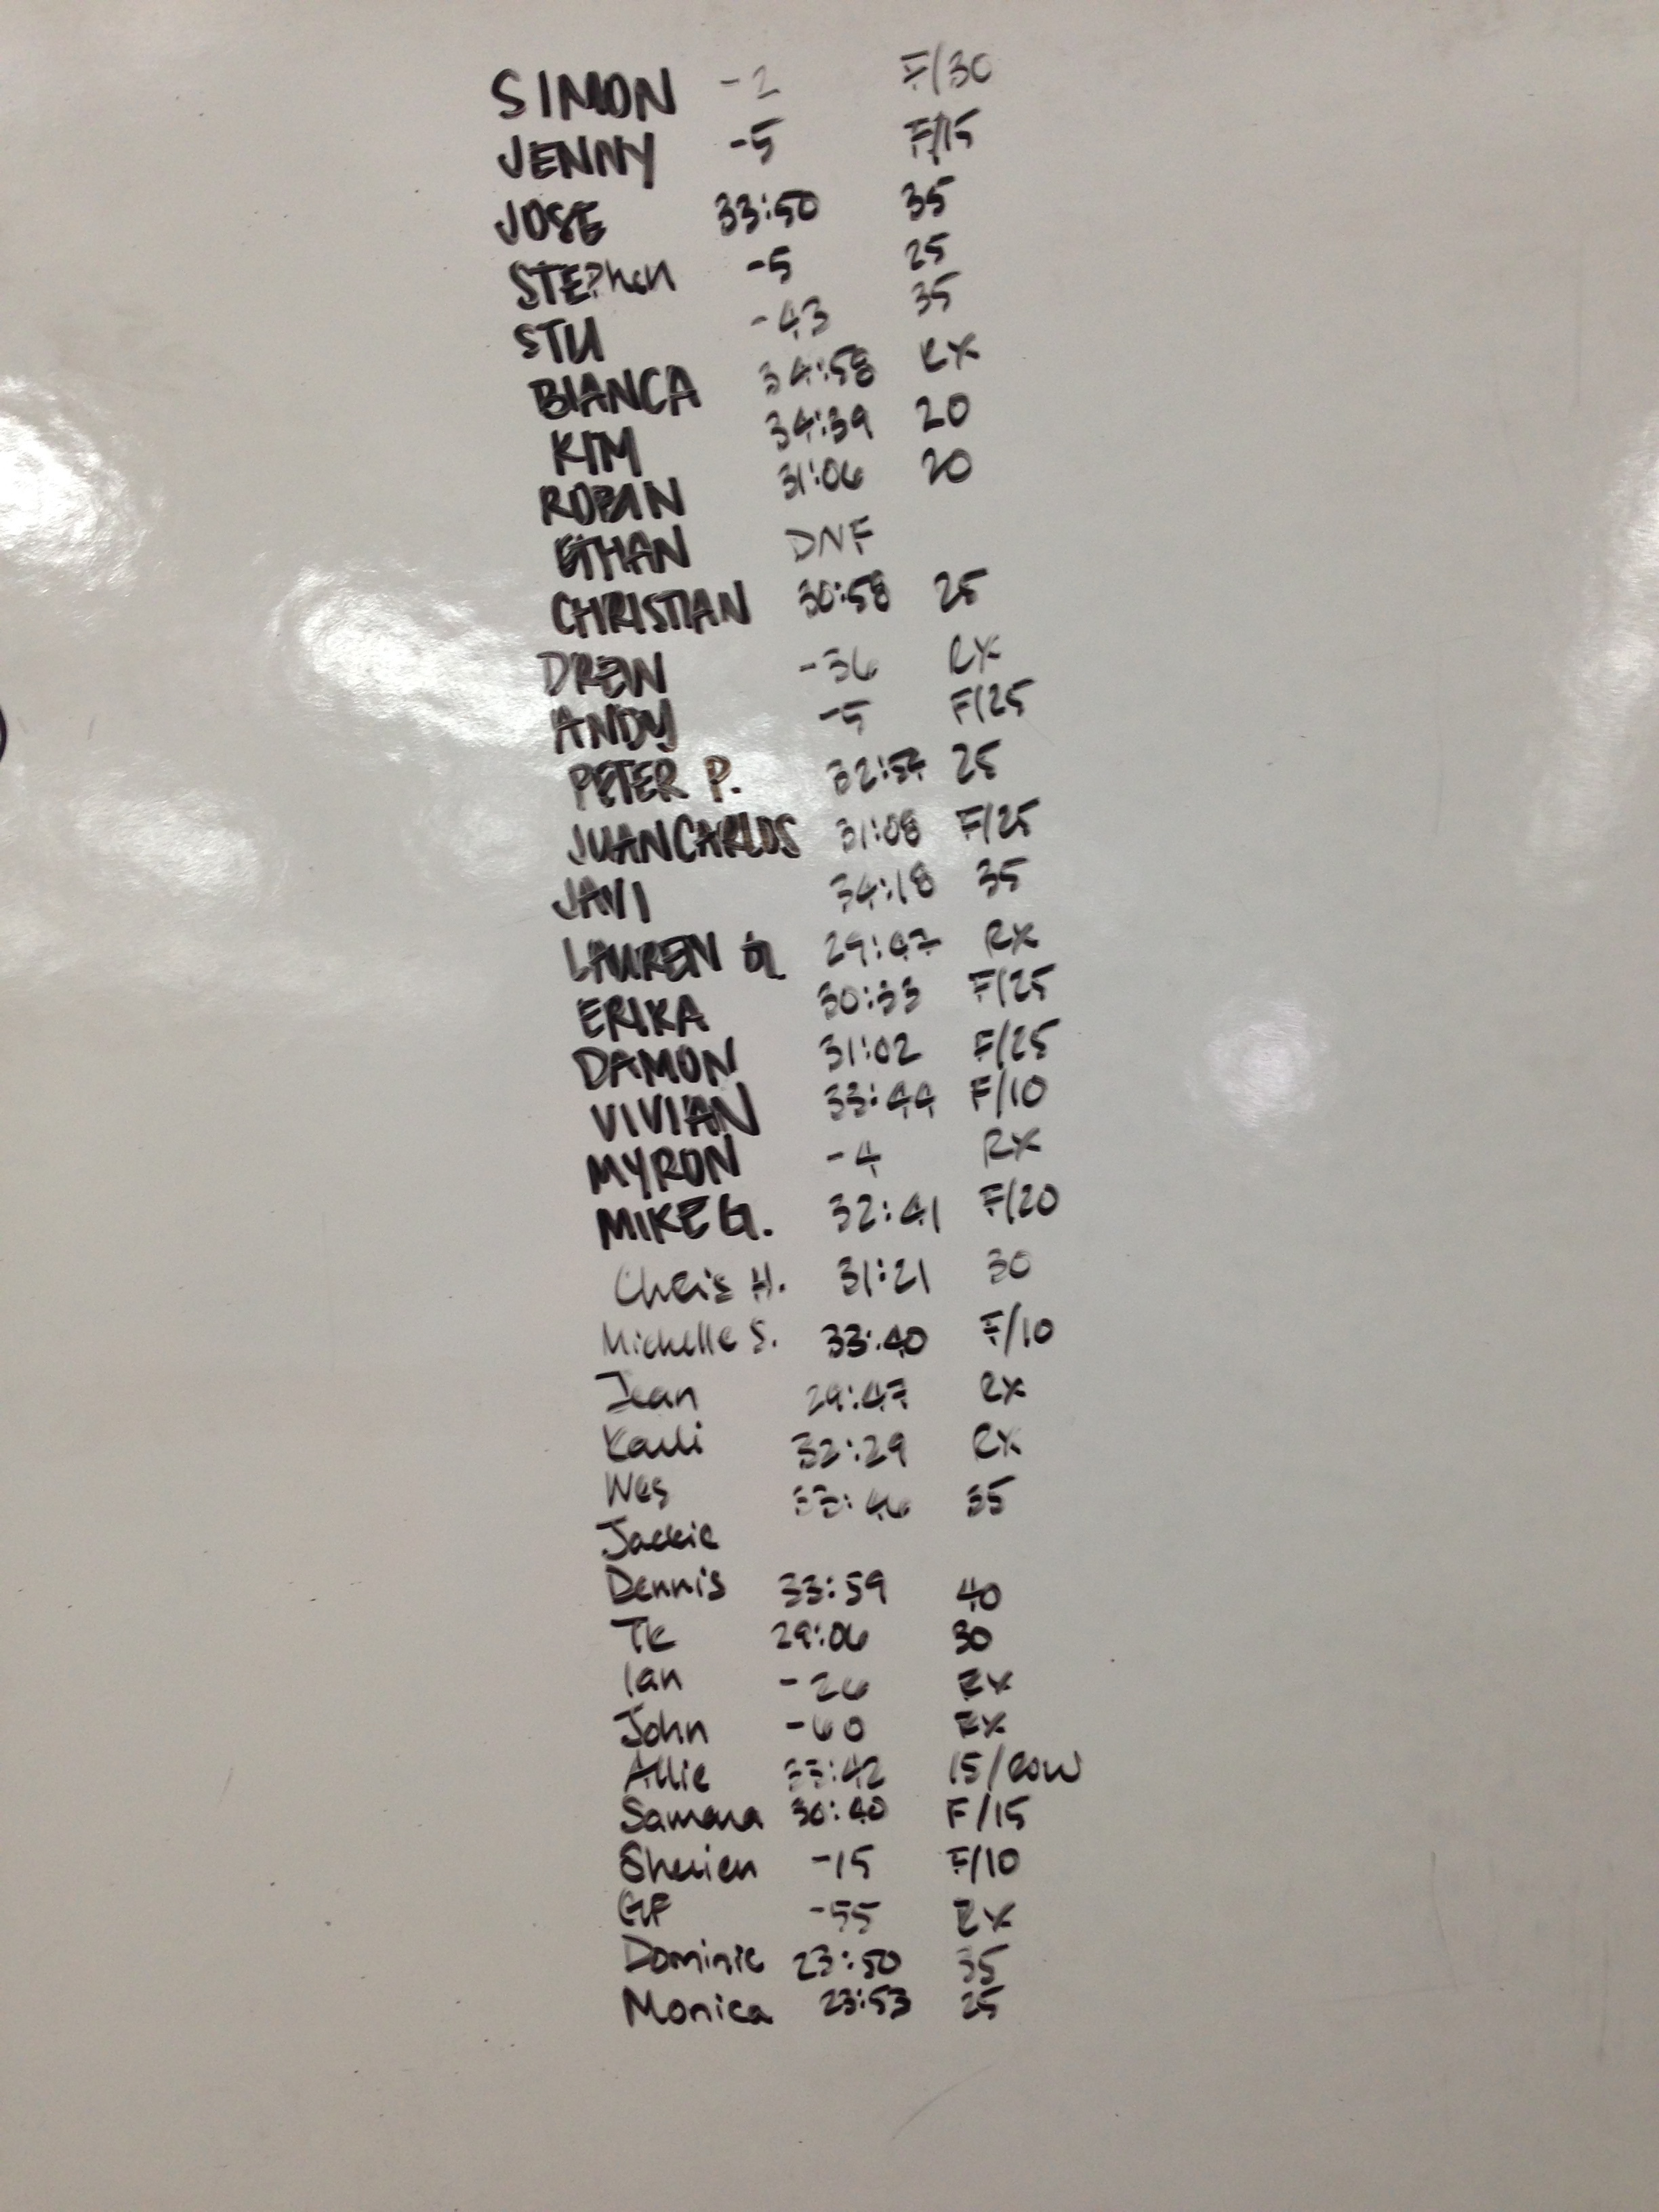 SIMON -2 F/30
JENNY -5 F/15
JOSE 33:50 35
STEPhen -5 25
STU -43 35
BIANCA 34:58 RX
KIM 34:39 20
ROBIN 31:06 20
ETHAN DNF
CHRISTIAN 30:58 25
DREW -36 RX
ANDY -5 F/25
PETER P. 32:54 25
JUANCARLOS 31:08 F/25
JAVI 34:18 35
LAUREN 29:47 RX
ERIKA 30:33 F/25
DAMON 31:02 F/25
VIVIAN 33:44 F/10
MYRON -4 RX
MIKE G. 32:41 F/20
Chris H. 31:21 30
Michelle S. 33:40 F/10
Jean 29:47 RX
Karli 32:29 RX
Wes 33:46 35
Jackie
Dennis 33:59 40
TK 29:06 30
Ian -26 RX
John -60 RX
Allie 33:42 15/ROW
Samara 30:40 F/15
-15 F/10
GF -55 RX
Dominic 23:50 35
Monica 23:53 25